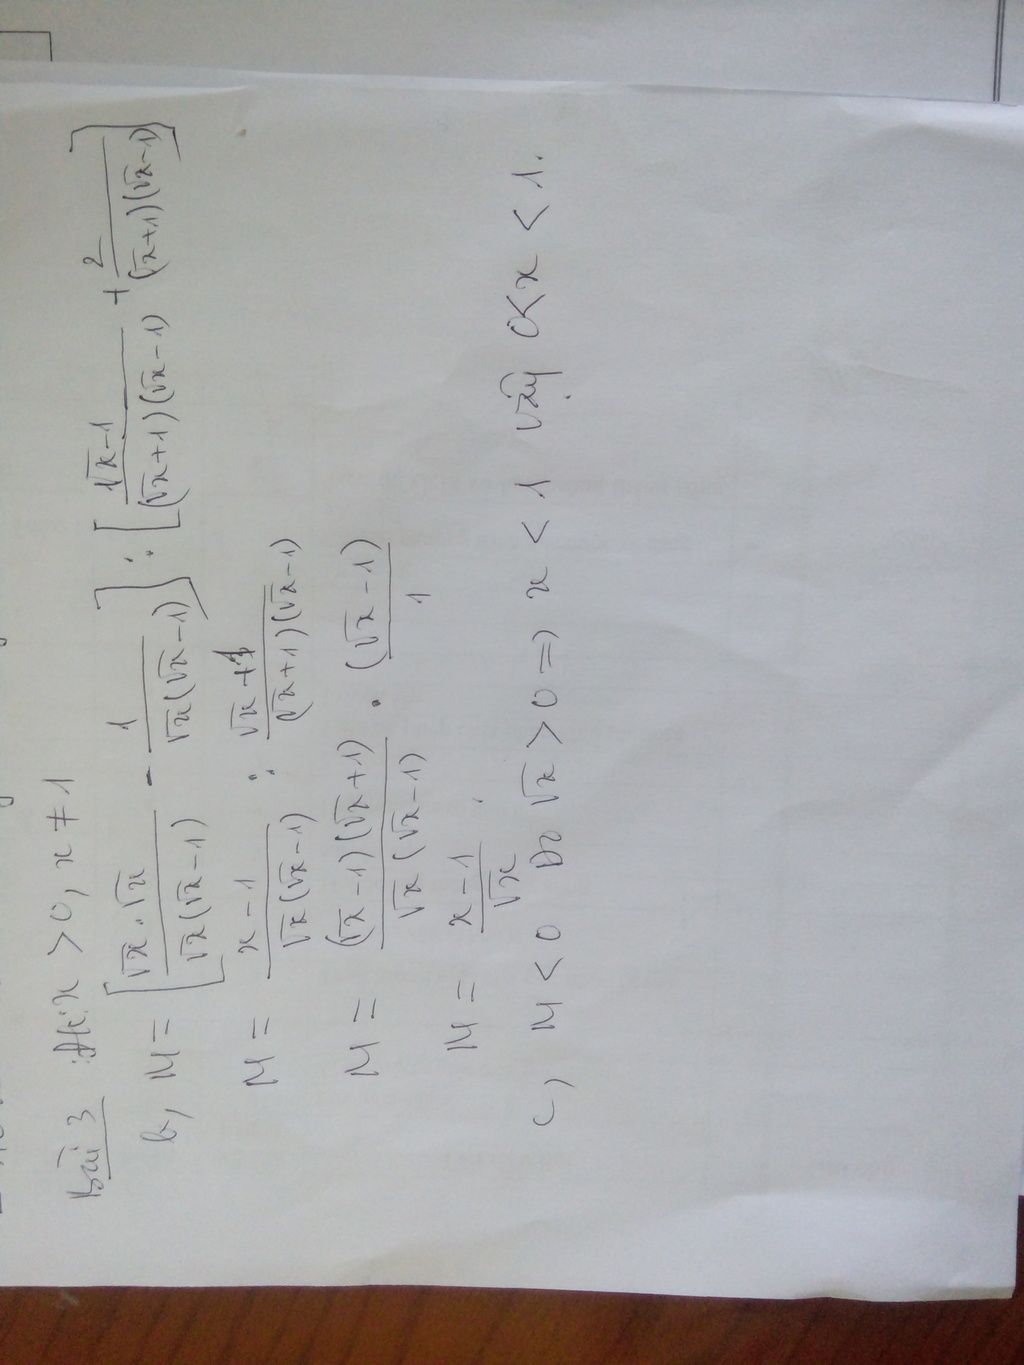 Bài 3 ĐK: x > 0, x ≠ 1
b, M = [√x.√x / √x(√x-1) - 1 / √x(√x-1)] : [√x-1 / (√x+1)(√x-1) + 2 / (√x+1)(√x-1)]
M = x-1 / √x(√x-1) : √x+1 / (√x+1)(√x-1)
M = (√x-1)(√x+1) / √x(√x-1) . (√x-1) / 1
M = x-1 / √x .
c, M < 0 Do √x > 0 => x < 1 Vậy 0<x < 1.